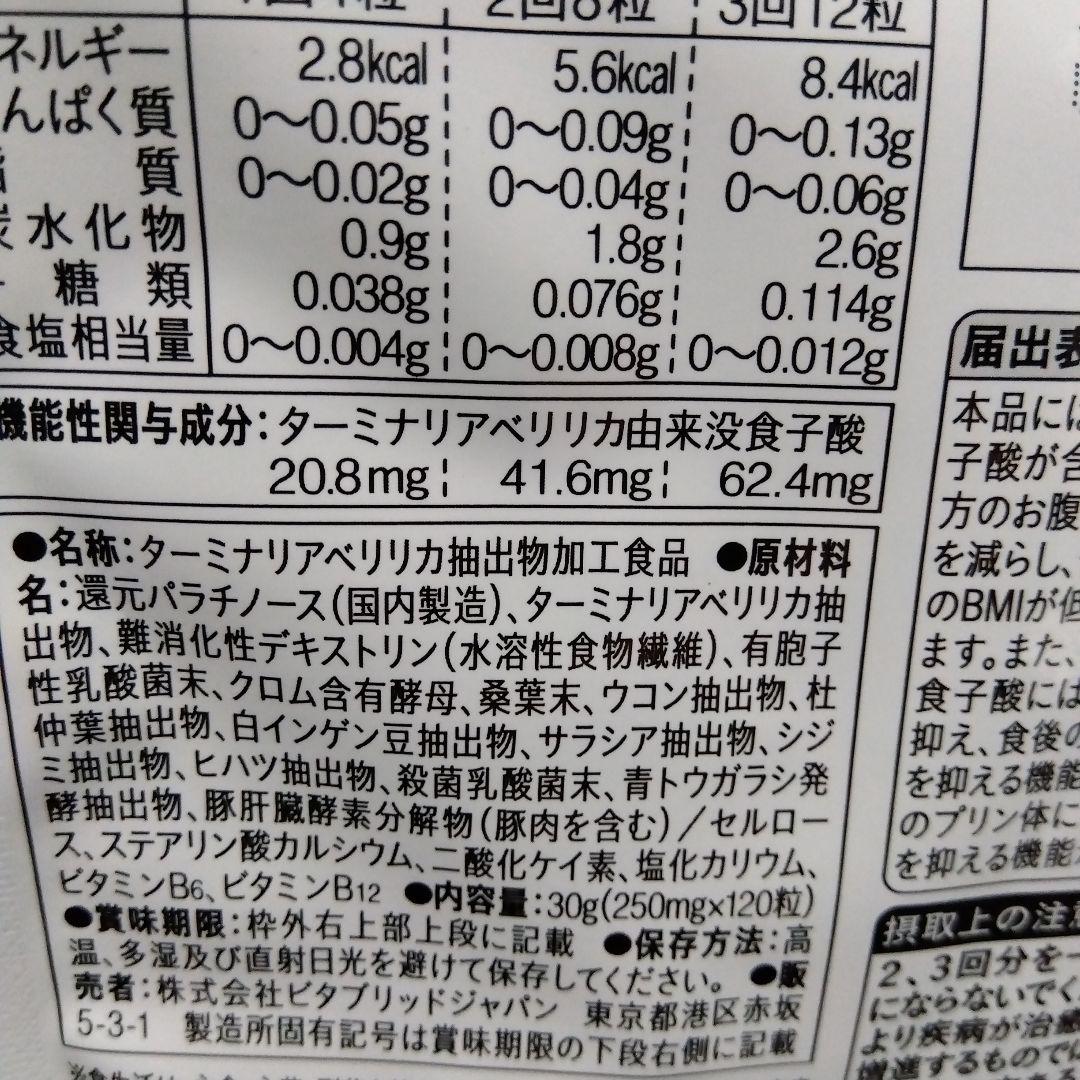 1回4粒 2回8粒 3回12粒
ネルギー 2.8kcal 5.6kcal 8.4kcal
んぱく質 0〜0.05g 0〜0.09g 0〜0.13g
質 0〜0.02g 0〜0.04g 0〜0.06g
炭水化物 0.9g 1.8g 2.6g
糖類 0.038g 0.076g 0.114g
食塩相当量 0〜0.004g 0〜0.008g 0〜0.012g
機能性関与成分:ターミナリアベリリカ由来没食子酸
20.8mg 41.6mg 62.4mg
●名称:ターミナリアベリリカ抽出物加工食品 ●原材料
名:還元パラチノース(国内製造)、ターミナリアベリリカ抽
出物、難消化性デキストリン(水溶性食物繊維)、有胞子
性乳酸菌末、クロム含有酵母、桑葉末、ウコン抽出物、杜
仲葉抽出物、白インゲン豆抽出物、サラシア抽出物、シジ
ミ抽出物、ヒハツ抽出物、殺菌乳酸菌末、青トウガラシ発
酵抽出物、豚肝臓酵素分解物(豚肉を含む)/セルロー
ス、ステアリン酸カルシウム、二酸化ケイ素、塩化カリウム、
ビタミンB6、ビタミンB12 ●内容量:30g(250mg×120粒)
●賞味期限:枠外右上部上段に記載 ●保存方法:高
温、多湿及び直射日光を避けて保存してください。 ●販
売者:株式会社ビタブリッドジャパン 東京都港区赤坂
5-3-1 製造所固有記号は賞味期限の下段右側に記載
届出表
本品には
子酸が含
方のお腹
を減らし、
のBMIが低
ます。また、
食子酸には
抑え、食後の
を抑える機能
のプリン体に
を抑える機能
摂取上の注意
2、3回分を一
にならないでく
より疾病が治癒
増進するものでは